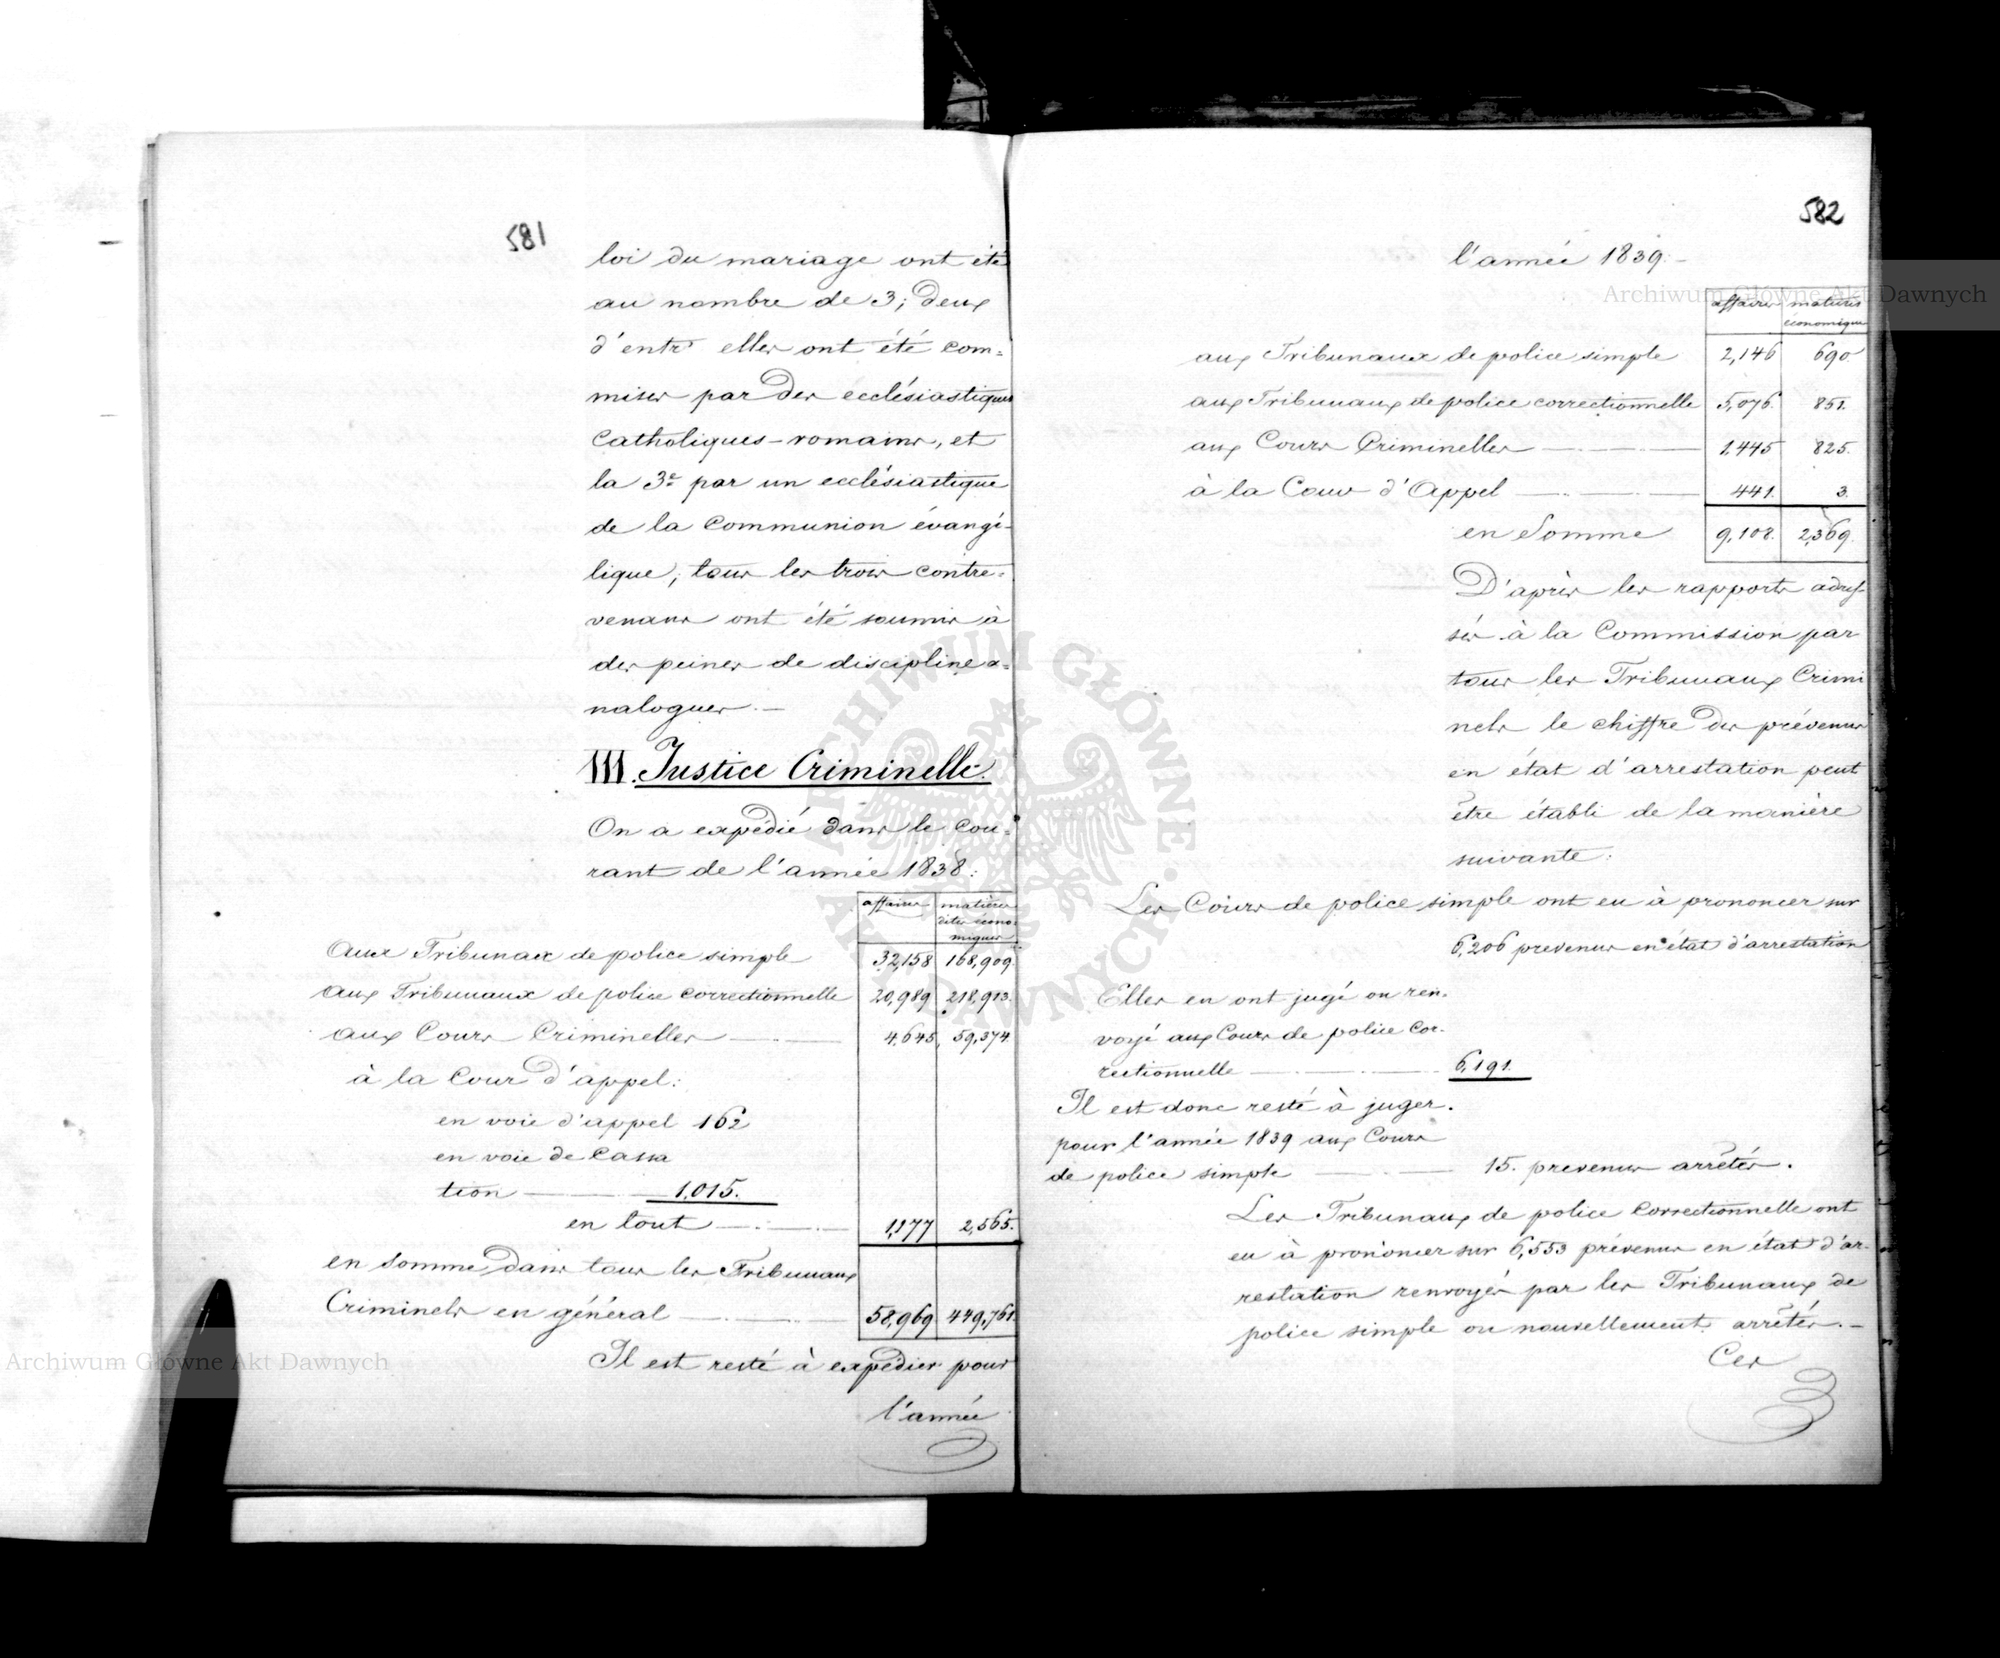 581
loi du mariage ont été
au nombre de 3; deux
d'entr' elles ont été com=
mises par des ecclésiastiques
Catholiques-romains, et
la 3e par un ecclésiastique
de la Communion évangé-
lique; tous les trois contre=
venans ont été soumis à
des peines de discipline a=
nalogues.-
III. Justice Criminelle.
On a expédié dans le cou=
rant de l'année 1838:
affaires matières
dites écono=
miques
Aux Tribunaux de police simple 32,158 168,909.
aux Tribunaux de police correctionnelle 20,989 218,913.
aux Cours Criminelles 4,645 59,374.
à la Cour d'appel:
en voie d'appel 162
en voie de Cassa
tion 1,015.
en tout 1,177 2,565.
en Somme dans tous les Tribunaux
Criminels en général 58,969 449,761.
Il est resté à expédier pour
l'année
582
l'année 1839.-
affaires matières
économiques
aux Tribunaux de police simple 2,146 690.
aux Tribunaux de police correctionnelle 5,076. 851.
aux Cours Criminelles 1,445 825.
à la Cour d'Appel 441. 3.
en Somme 9,108. 2,369.
D'après les rapports adres-
sés à la Commission par
tous les Tribunaux Crimi
nels le chiffre des prévenus
en état d'arrestation peut
être établi de la manière
suivante:
Les Cours de police simple ont eu à prononcer sur
6,206 prevenus en état d'arrestation
Elles en ont jugé ou ren-
voyé aux Cours de police Cor-
rectionnelle 6,191.
Il est donc resté à juger.
pour l'année 1839 aux Cours
de police simple 15. prevenus arrêtés.
Les Tribunaux de police Correctionnelle ont
eu à prononcer sur 6,553 prévenus en état d'ar-
restation renvoyés par les Tribunaux de
police simple ou nouvellement arrêtés.-
Ces
Archiwum Główne Akt Dawnych
Archiwum Główne Akt Dawnych
ARCHIWUM GŁÓWNE AKT DAWNYCH